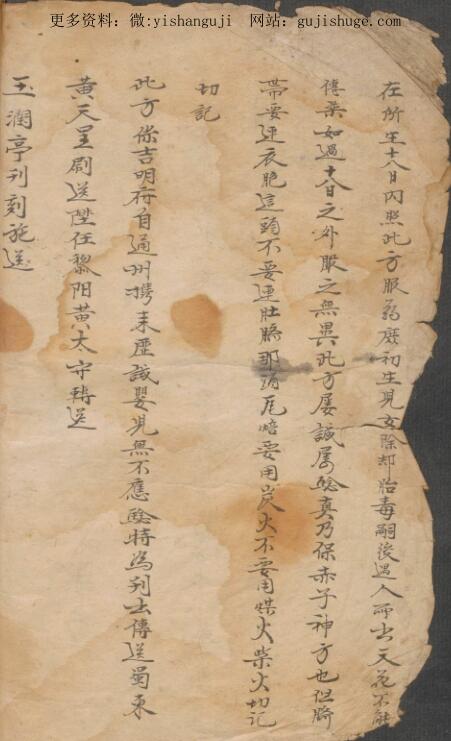 更多资料：微:yishanguji 网站：gujishuge.com
在所生十八日內照此方服药庶初生兒女除却胎毒嗣後遇入而出天花不能
傳染如過十八日之外服之無異此方屡誠屡騐真乃保赤子神方也但臍
帶要連衣胞這頭不要連肚臍那頭瓦焙要用炭火不要用煤火柴火切記
切記
此方係吉明府自通州携来歷誠嬰兒無不應騐特為刋出傳送蜀東
黄天星刷送陞任黎阳黄太守轉送
玉潤亭刋刻施送